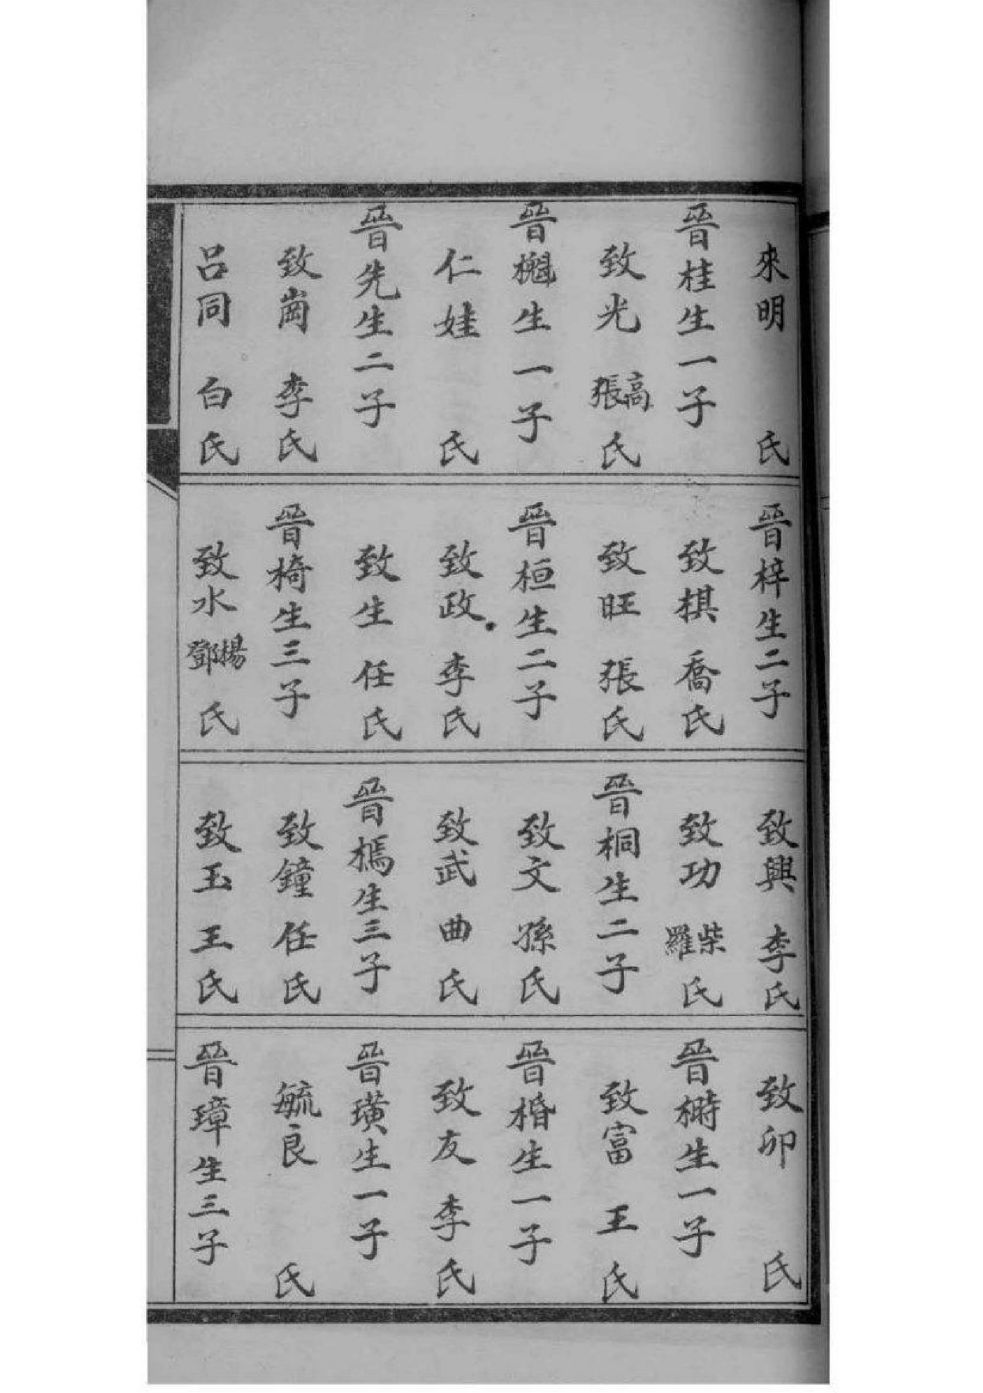 來明 氏
晉桂生一子
致光 高張氏
晉櫆生一子
仁娃 氏
晉先生二子
致崗 李氏
呂同 白氏
晉梓生二子
致棋 喬氏
致旺 張氏
晉桓生二子
致政 李氏
致生 任氏
晉椅生三子
致水 楊鄧氏
致興 李氏
致功 柴羅氏
晉桐生二子
致文 孫氏
致武 曲氏
晉樢生三子
致鐘 任氏
致玉 王氏
致卯 氏
晉榯生一子
致富 王氏
晉棔生一子
致友 李氏
晉璜生一子
毓良 氏
晉璋生三子